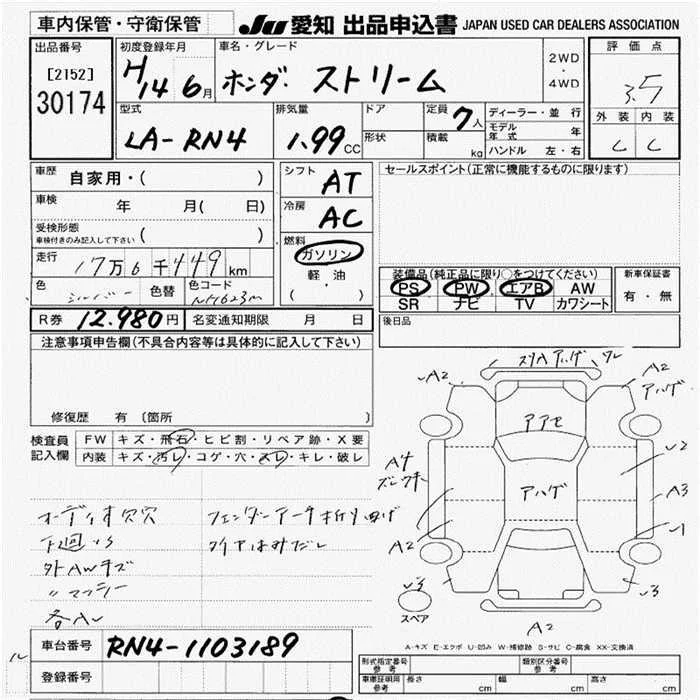 車内保管・守衛保管
JU 愛知 出品申込書 JAPAN USED CAR DEALERS ASSOCIATION
出品番号
[2152]
30174
初度登録年月
H14 6月
車名・グレード
ホンダ ストリーム
2WD
・
4WD
評価点
3.5
外装 内装
C C
型式
LA-RN4
排気量
1.99 CC
ドア
形状
定員 7人
積載 kg
ディーラー・並行
モデル年式 年
ハンドル 左・右
車歴 自家用・( )
車検 年 月( 日)
受検形態
車検付きのみ記入して下さい ( )
走行 17万6千449km
色 シルバー 色替 色コード NH623M
シフト AT
冷房 AC
燃料
ガソリン
軽油
( ・ )
セールスポイント(正常に機能するものに限ります)
装備品(純正品に限り○をつけてください)
PS PW エアB AW
SR ナビ TV カワシート
新車保証書
有・無
後日品
R券 12,980円 名変通知期限 月 日
注意事項申告欄(不具合内容等は具体的に記入して下さい)
修復歴 有 〔箇所
検査員
記入欄
FW キズ・飛石・ヒビ割・リペア跡・X要
内装 キズ・汚レ・コゲ・穴・スレ・キレ・破レ
オーディオ欠穴 フェンダーアーチ折り曲げ
下廻りS タイヤはみだし
外AWキズ
〃マフラー
各AU
A2
スリA アハゲ ワレ
A2
アハゲ
アアセ
アハゲ
A4
A2
U2
A3
U1
U3
U3
A2
スペア
A-キズ E-エクボ U-凹み W-補修跡 S-サビ C-腐食 XX-交換済
車台番号 RN4-1103189
登録番号
型式指定番号 参考
類別区分番号 参考
車庫証明用 参考 長さ cm 幅 cm 高さ cm